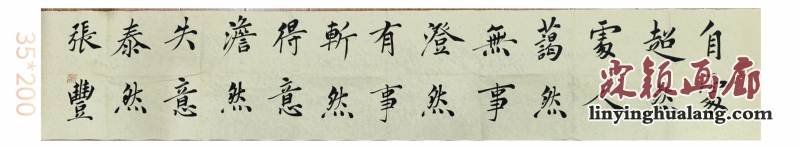 自處
超然
處人
藹然
無事
澄然
有事
斬然
得意
澹然
失意
泰然
張豐
35*200
霖颖画廊
linyinghualang.com